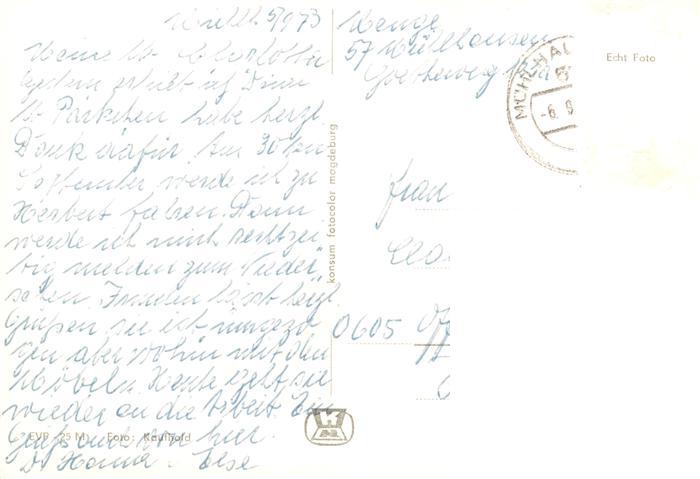 5/9 73
Meine lb. Charlotte
gestern erhielt ich Dein
lb. Päckchen habe herzl.
Dank dafür. Am 30ten
September werde ich zu
Herbert fahren. Dann
werde ich mich rechtzei
tig melden zum Wieder
sehen. Frieden lässt herzl.
Grüßen sie ist umgezo
gen aber wohin mit den
Möbeln. Heute geht sie
wieder an die Arbeit. Ein
Gruß auch von hier.
D. Hanna. Else
EVP -,25 M Foto: Kaufhold
konsum fotocolor magdeburg
Menge
57 Mühlhausen
Goetheweg
MÜHLHAU
-6.
Echt Foto
Frau
0605